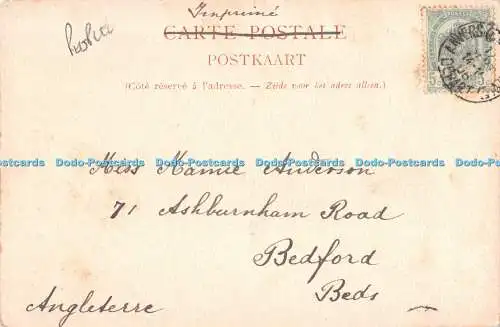 Imprimé
CARTE POSTALE
POSTKAART
(Côté réservé à l'adresse. — Zijde voor het adres alleen.)
Dodo-Postcards Dodo-Postcards Dodo-Postcards Dodo-Postcards Dodo-Postcards
Miss Mamie Anderson
71 Ashburnham Road
Dodo-Postcards Dodo-Postcards Dodo-Postcards Dodo-Postcards Dodo-Postcards
Bedford
Angleterre Beds